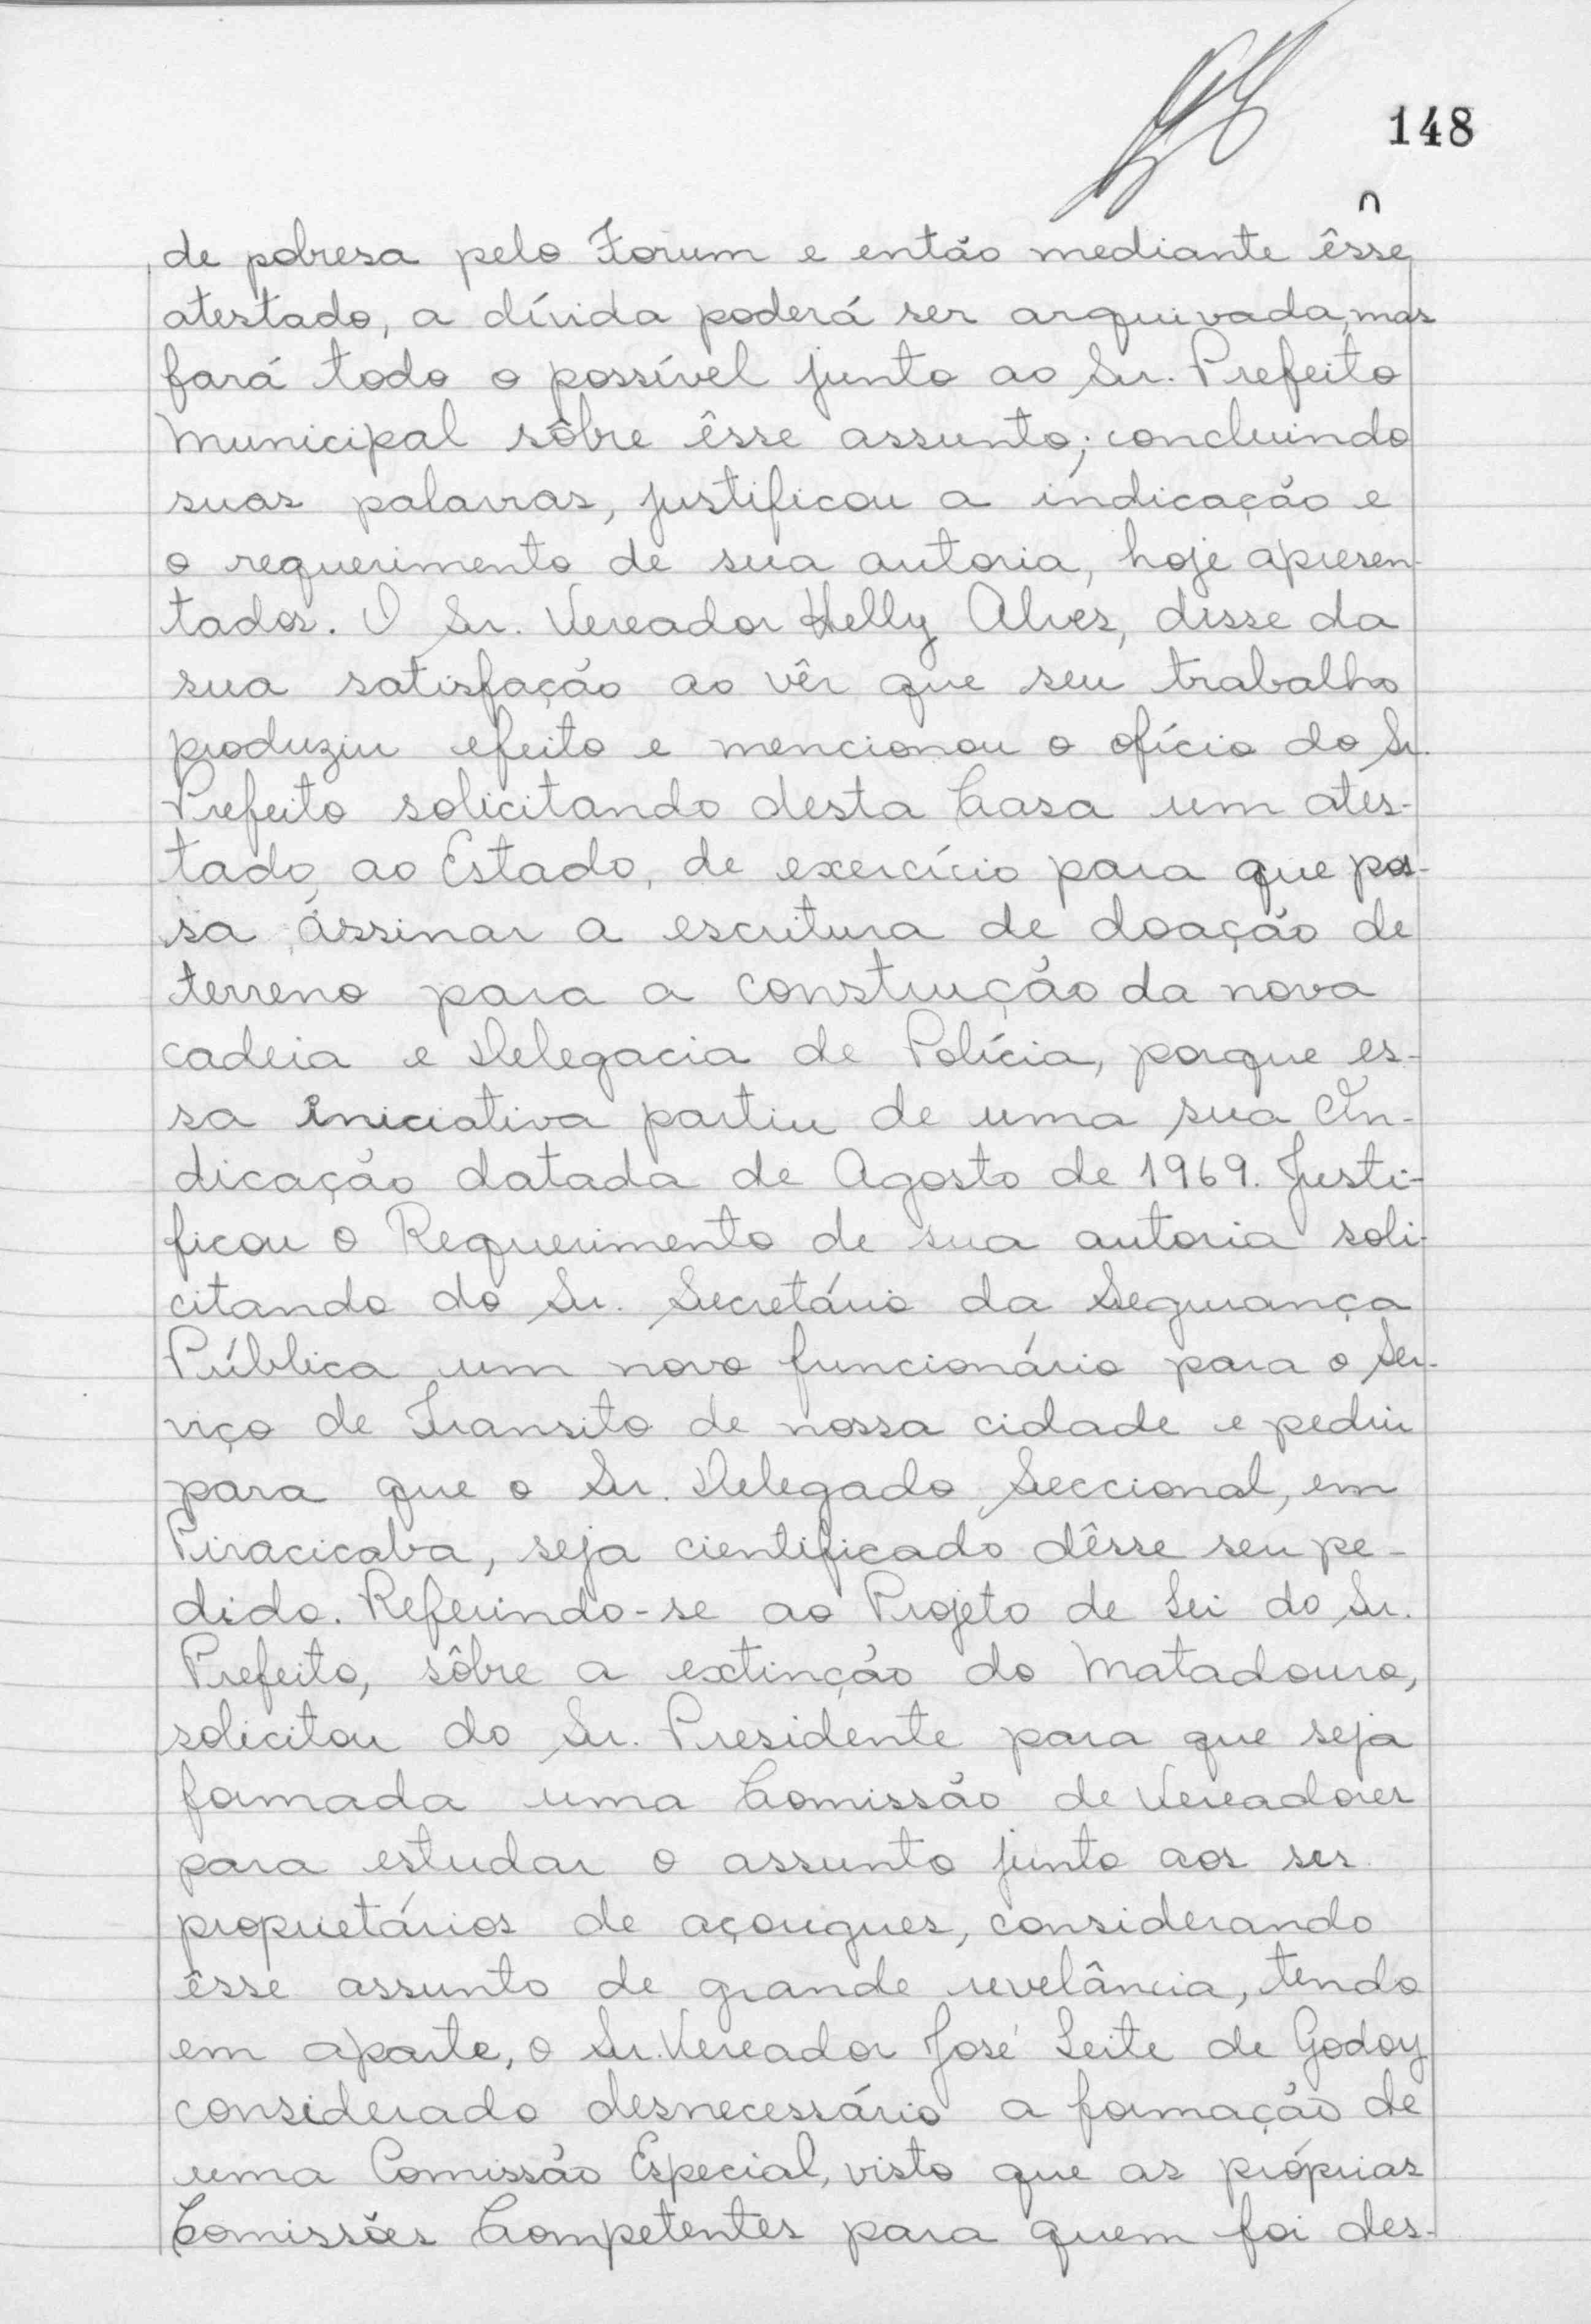 148
de pobresa pelo Forum e então mediante êsse
atestado, a dívida poderá ser arquivada, mas
fará todo o possível junto ao Sr. Prefeito
Municipal sôbre êsse assunto; concluindo
suas palavras, justificou a indicação e
o requerimento de sua autoria, hoje apresen-
tados. O Sr. Vereador Helly Alves, disse da
sua satisfação ao vêr que seu trabalho
produziu efeito e mencionou o ofício do Sr.
Prefeito solicitando desta Casa um ates-
tado, ao Estado, de exercício para que pos-
sa assinar a escritura de doação de
terreno para a construção da nova
cadeia e Delegacia de Polícia, porque es-
sa iniciativa partiu de uma sua In-
dicação datada de Agosto de 1969. Justi-
ficou o Requerimento de sua autoria soli-
citando do Sr. Secretário da Segurança
Pública um novo funcionário para o Ser-
viço de Transito de nossa cidade e pediu
para que o Sr. Delegado Seccional, em
Piracicaba, seja cientificado dêsse seu pe-
dido. Referindo-se ao Projeto de Lei do Sr.
Prefeito, sôbre a extinção do Matadouro,
solicitou do Sr. Presidente para que seja
formada uma Comissão de Vereadores
para estudar o assunto junto aos srs.
proprietários de açougues, considerando
êsse assunto de grande revelância, tendo
em aparte, o Sr. Vereador José Leite de Godoy
considerado desnecessário a formação de
uma Comissão Especial, visto que as próprias
Comissões Competentes para quem foi des-